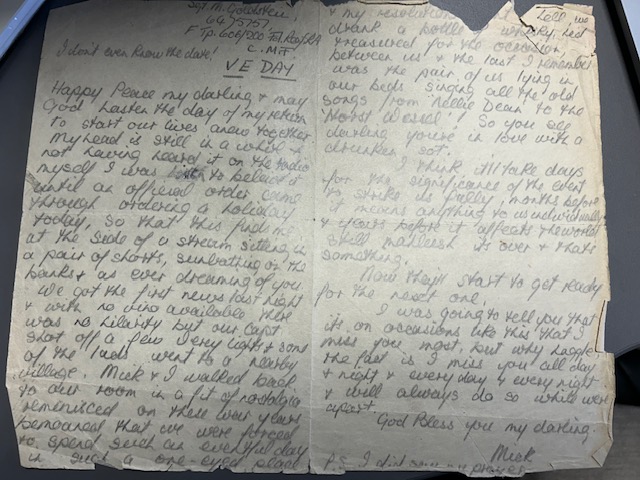 Sgt. M. Goldstein
6475757
F Tp. 608/200 Fd. Regt RA
C.M.F.
I don't even know the date!
VE DAY
Happy Peace my darling & may
God hasten the day of my return
to start our lives anew together
My head is still in a whirl &
not having heard it on the radio
myself I was loth to believe it
until an official order came
through ordering a holiday
today, so that this finds me
at the side of a stream sitting in
a pair of shorts, sunbathing on the
banks & as ever dreaming of you
We got the first news last night
& with no vino available there
was no hilarity but our Capt.
shot off a few very lights & some
of the lads went to a nearby
village. Mick & I walked back
to our room in a fit of nostalgia
reminisced on these war years
bemoaned that we were forced
to spend such an eventful day
in such a one-eyed place
& my resolutions well, we
drank a bottle of whisky I'd
treasured for the occasion
between us & the last I remember
was the pair of us lying in
our beds singing all the old
songs from Nellie Dean to the
Horst Wessel! So you see
darling you're in love with a
drunken sot.
I think it'll take days
for the significance of the event
to strike us fully, months before
it means anything to us individually
& years before it affects the world
still it's over & thats
something.
Now they'll start to get ready
for the next one.
I was going to tell you that
its on occasions like this that I
miss you most, but why haggle
the fact is I miss you all day
& night & every day & every night
& will always do so while we're
apart.
God Bless you my darling
Mick
P.S. I did say my prayers